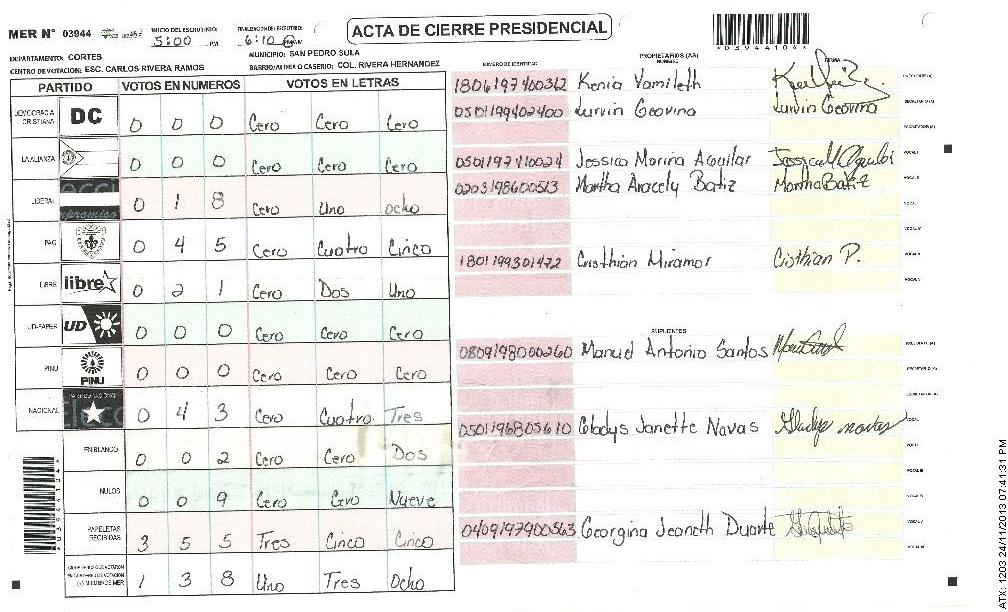 MER N° 03944
INICIO DEL ESCRUTINIO: 5:00 PM
FINALIZACION DEL ESCRUTINIO: 6:10 PM
ACTA DE CIERRE PRESIDENCIAL
DEPARTAMENTO: CORTES
MUNICIPIO: SAN PEDRO SULA
CENTRO DE VOTACION: ESC. CARLOS RIVERA RAMOS
BARRIO/ALDEA O CASERIO: COL. RIVERA HERNANDEZ
PARTIDO VOTOS EN NUMEROS VOTOS EN LETRAS
DEMOCRACIA CRISTIANA DC 0 0 0 Cero Cero Cero
LA ALIANZA 0 0 0 Cero Cero Cero
LIBERAL 0 1 8 Cero Uno ocho
PAC 0 4 5 Cero Cuatro Cinco
LIBRE libre 0 2 1 Cero Dos Uno
UD-FAPER UD 0 0 0 Cero Cero Cero
PINU PINU 0 0 0 Cero Cero Cero
NACIONAL 0 4 3 Cero Cuatro Tres
EN BLANCO 0 0 2 Cero Cero Dos
NULOS 0 0 9 Cero Cero Nueve
PAPELETAS RECIBIDAS 3 5 5 Tres Cinco Cinco
1 3 8 Uno Tres Ocho
*03944104*
PROPIETARIOS (AS)
NUMERO DE IDENTIDAD NOMBRE FIRMA
1806197400312 Kenia Yamileth
0501199402400 Lurvin Geovina Lurvin Geovina
0501197410024 Jessica Marina Aguilar
0203198600513 Martha Aracely Batiz Martha Batiz
1801199301472 Cristhian Miramor Cristhian P.
SUPLENTES
0809198000260 Manuel Antonio Santos
0501196805610 Gladys Janette Navas Gladys navas
0409197900563 Georgina Jeaneth Duarte
ATX: 1203 24/11/2013 07:41:31 PM